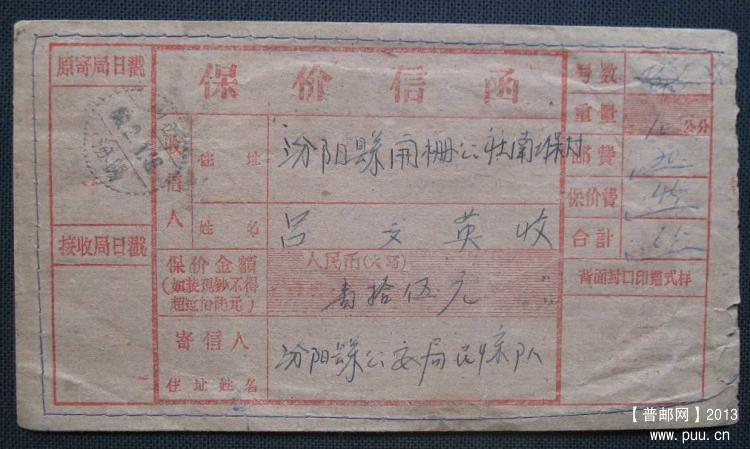 原寄局日戳
保价信函
号数
重量
10 公分
邮费
20
保价費
45
合計
65
背面封口印鑑式样
收信人
住址
汾阳县开栅公社南堡村
姓名
吕文英收
接收局日戳
保价金額
(如装现鈔不得
超过伍拾元)
人民币(大写)
壹拾伍元
寄信人
住址姓名
汾阳县公安局
队
【普邮网】2013
www.puu.cn